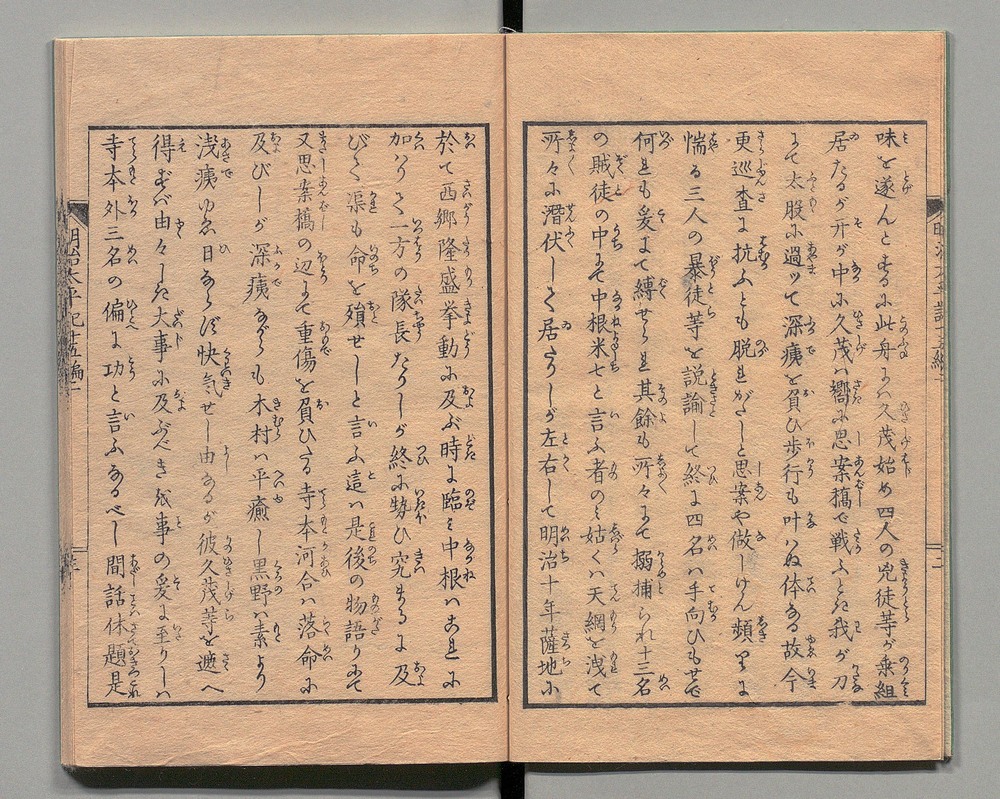 味を遂んとするに此舟には久茂始め四人の兇徒等が乗組
居たるが开が中に久茂は嚮に思案橋で戦ふとき我が刀
にて太股に過ッて深痍を負ひ歩行も叶はぬ体なる故今
更巡査に抗ふとも脱れがたしと思案や做しけん頻りに
惴る三人の暴徒等を説諭して終に四名は手向ひもせで
何れも爰にて縛せられ其餘も所々にて搦捕られ十三名
の賊徒の中にて中根米七と言ふ者のミ姑くは天網を洩て
所々に潜伏して居たりしが左右して明治十年薩地に
於て西郷隆盛挙動に及ぶ時に臨ミ中根はこれに
加はりて一方の隊長たりしが終に勢ひ究まるに及
びて渠も命を殞せしと言ふ這は是後の物語りにて
又思案橋の辺にて重傷を負ひたる寺本河合は落命に
及びしが深痍ながらも木村は平癒し黒野は素より
浅痍ゆゑ日ならず快気せし由なるが彼久茂等を遮へ
得ずば由々しき大事に及ぶべきを事の爰に至りしは
寺本外三名の偏に功と言ふなるべし間話休題是
明治太平記十五編二